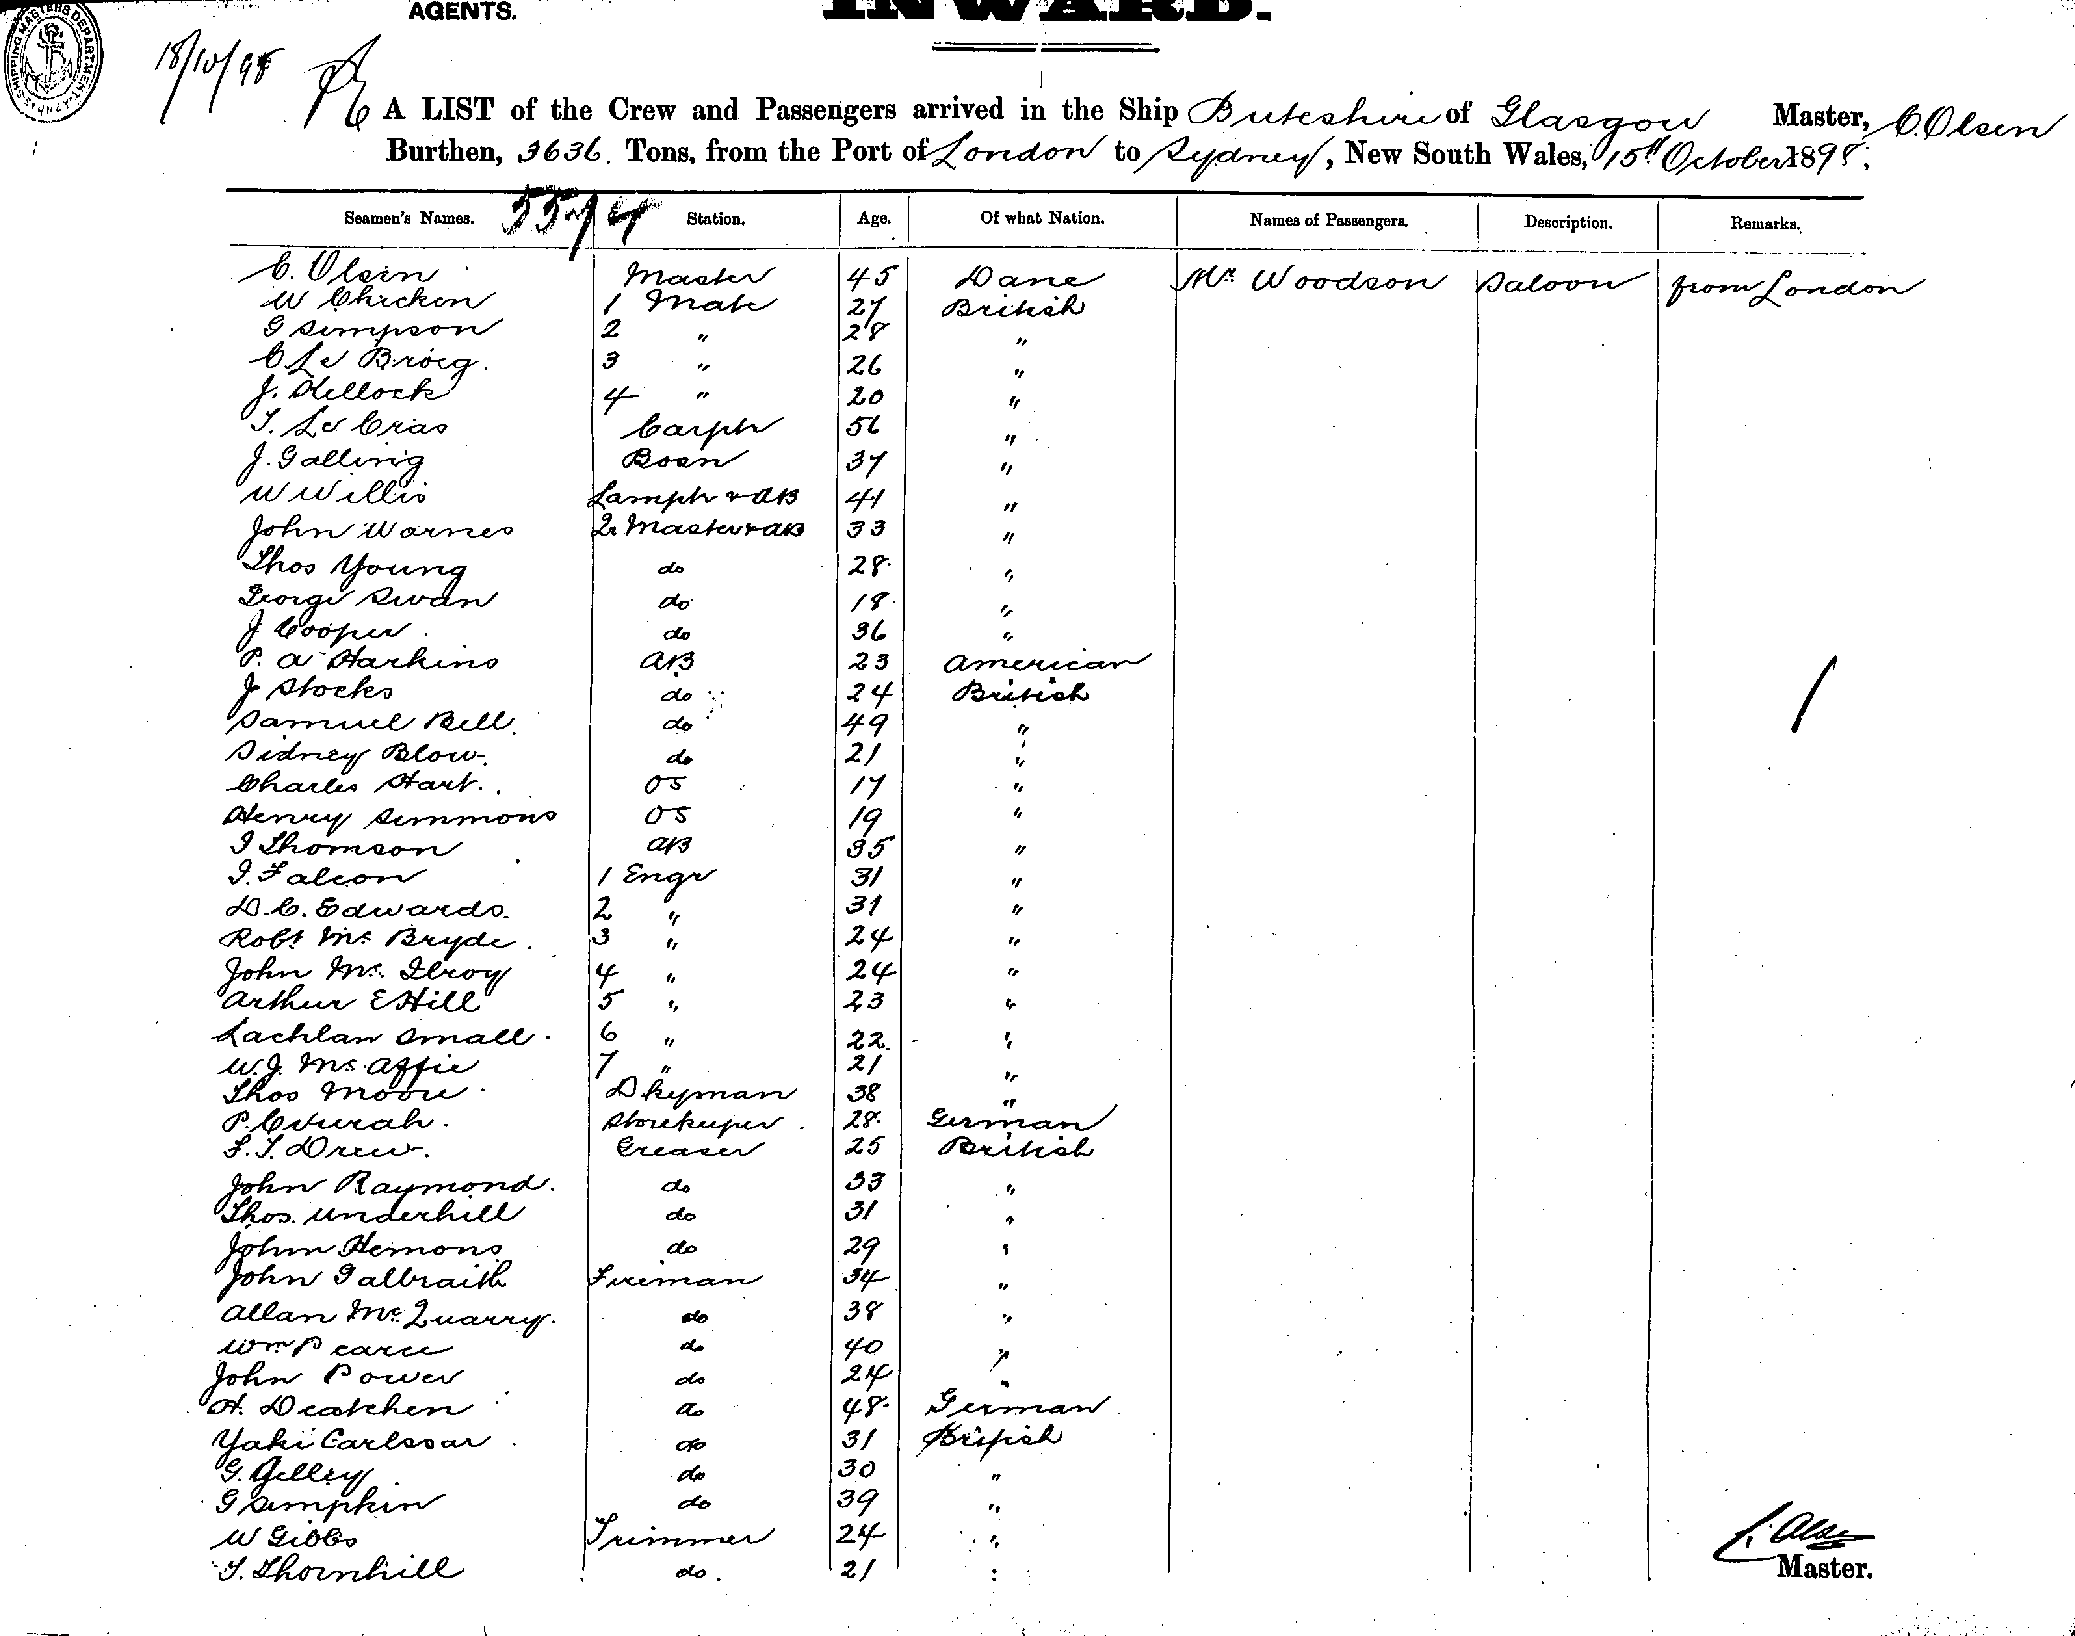 AGENTS.
INWARD.
SHIPPING MASTERS DEPARTMENT
18/10/98
A LIST of the Crew and Passengers arrived in the Ship Buteshire of Glasgow Master, C. Olsen
Burthen, 3636. Tons, from the Port of London to Sydney, New South Wales, 15th October 1898.
Seamen's Names. Station. Age. Of what Nation. Names of Passengers. Description. Remarks.
C. Olsen Master 45 Dane Mr. Woodson Saloon from London
W Chicken 1 Mate 27 British
G Simpson 2 " 28 "
C Le Brocq. 3 " 26 "
J. Hellock 4 " 20 "
T. Le Cras Carptr 56 "
J. Galling Bosn 37 "
W Willis Lamptr & AB 41 "
John Warnes Qr Master & AB 33 "
Thos Young do 28 "
George Swan do 18 "
J Cooper do 36 "
P. A Harkins AB 23 American
J Stocks do 24 British
Samuel Bell. do 49 "
Sidney Blow. do 21 "
Charles Hart. OS 17 "
Henry Simmons OS 19 "
J Thomson AB 35 "
J. Falcon 1 Engr 31 "
D. C. Edwards. 2 " 31 "
Robt Mc Bryde. 3 " 24 "
John Mc. Ilroy 4 " 24 "
Arthur E Hill 5 " 23 "
Lachlan Small. 6 " 22 "
W. J. Mc Affie 7 " 21 "
Thos Moore Dkyman 38 "
P. Storekeeper 28 German
F. T. Drew. Greaser 25 British
John Raymond. do 33 "
Thos. Underhill do 31 "
John Hemons do 29 "
John Galbraith Fireman 34 "
Allan Mc Quarry. do 38 "
Wm Pearce do 40 "
John Power do 24 "
H. Deatchen do 48 German
Yaki Carlssar do 31 British
G. Gelley do 30 "
G Simpkin do 39 "
W Gibbs Trimmer 24 "
T. Thornhill do. 21 "
C. Olsen
Master.